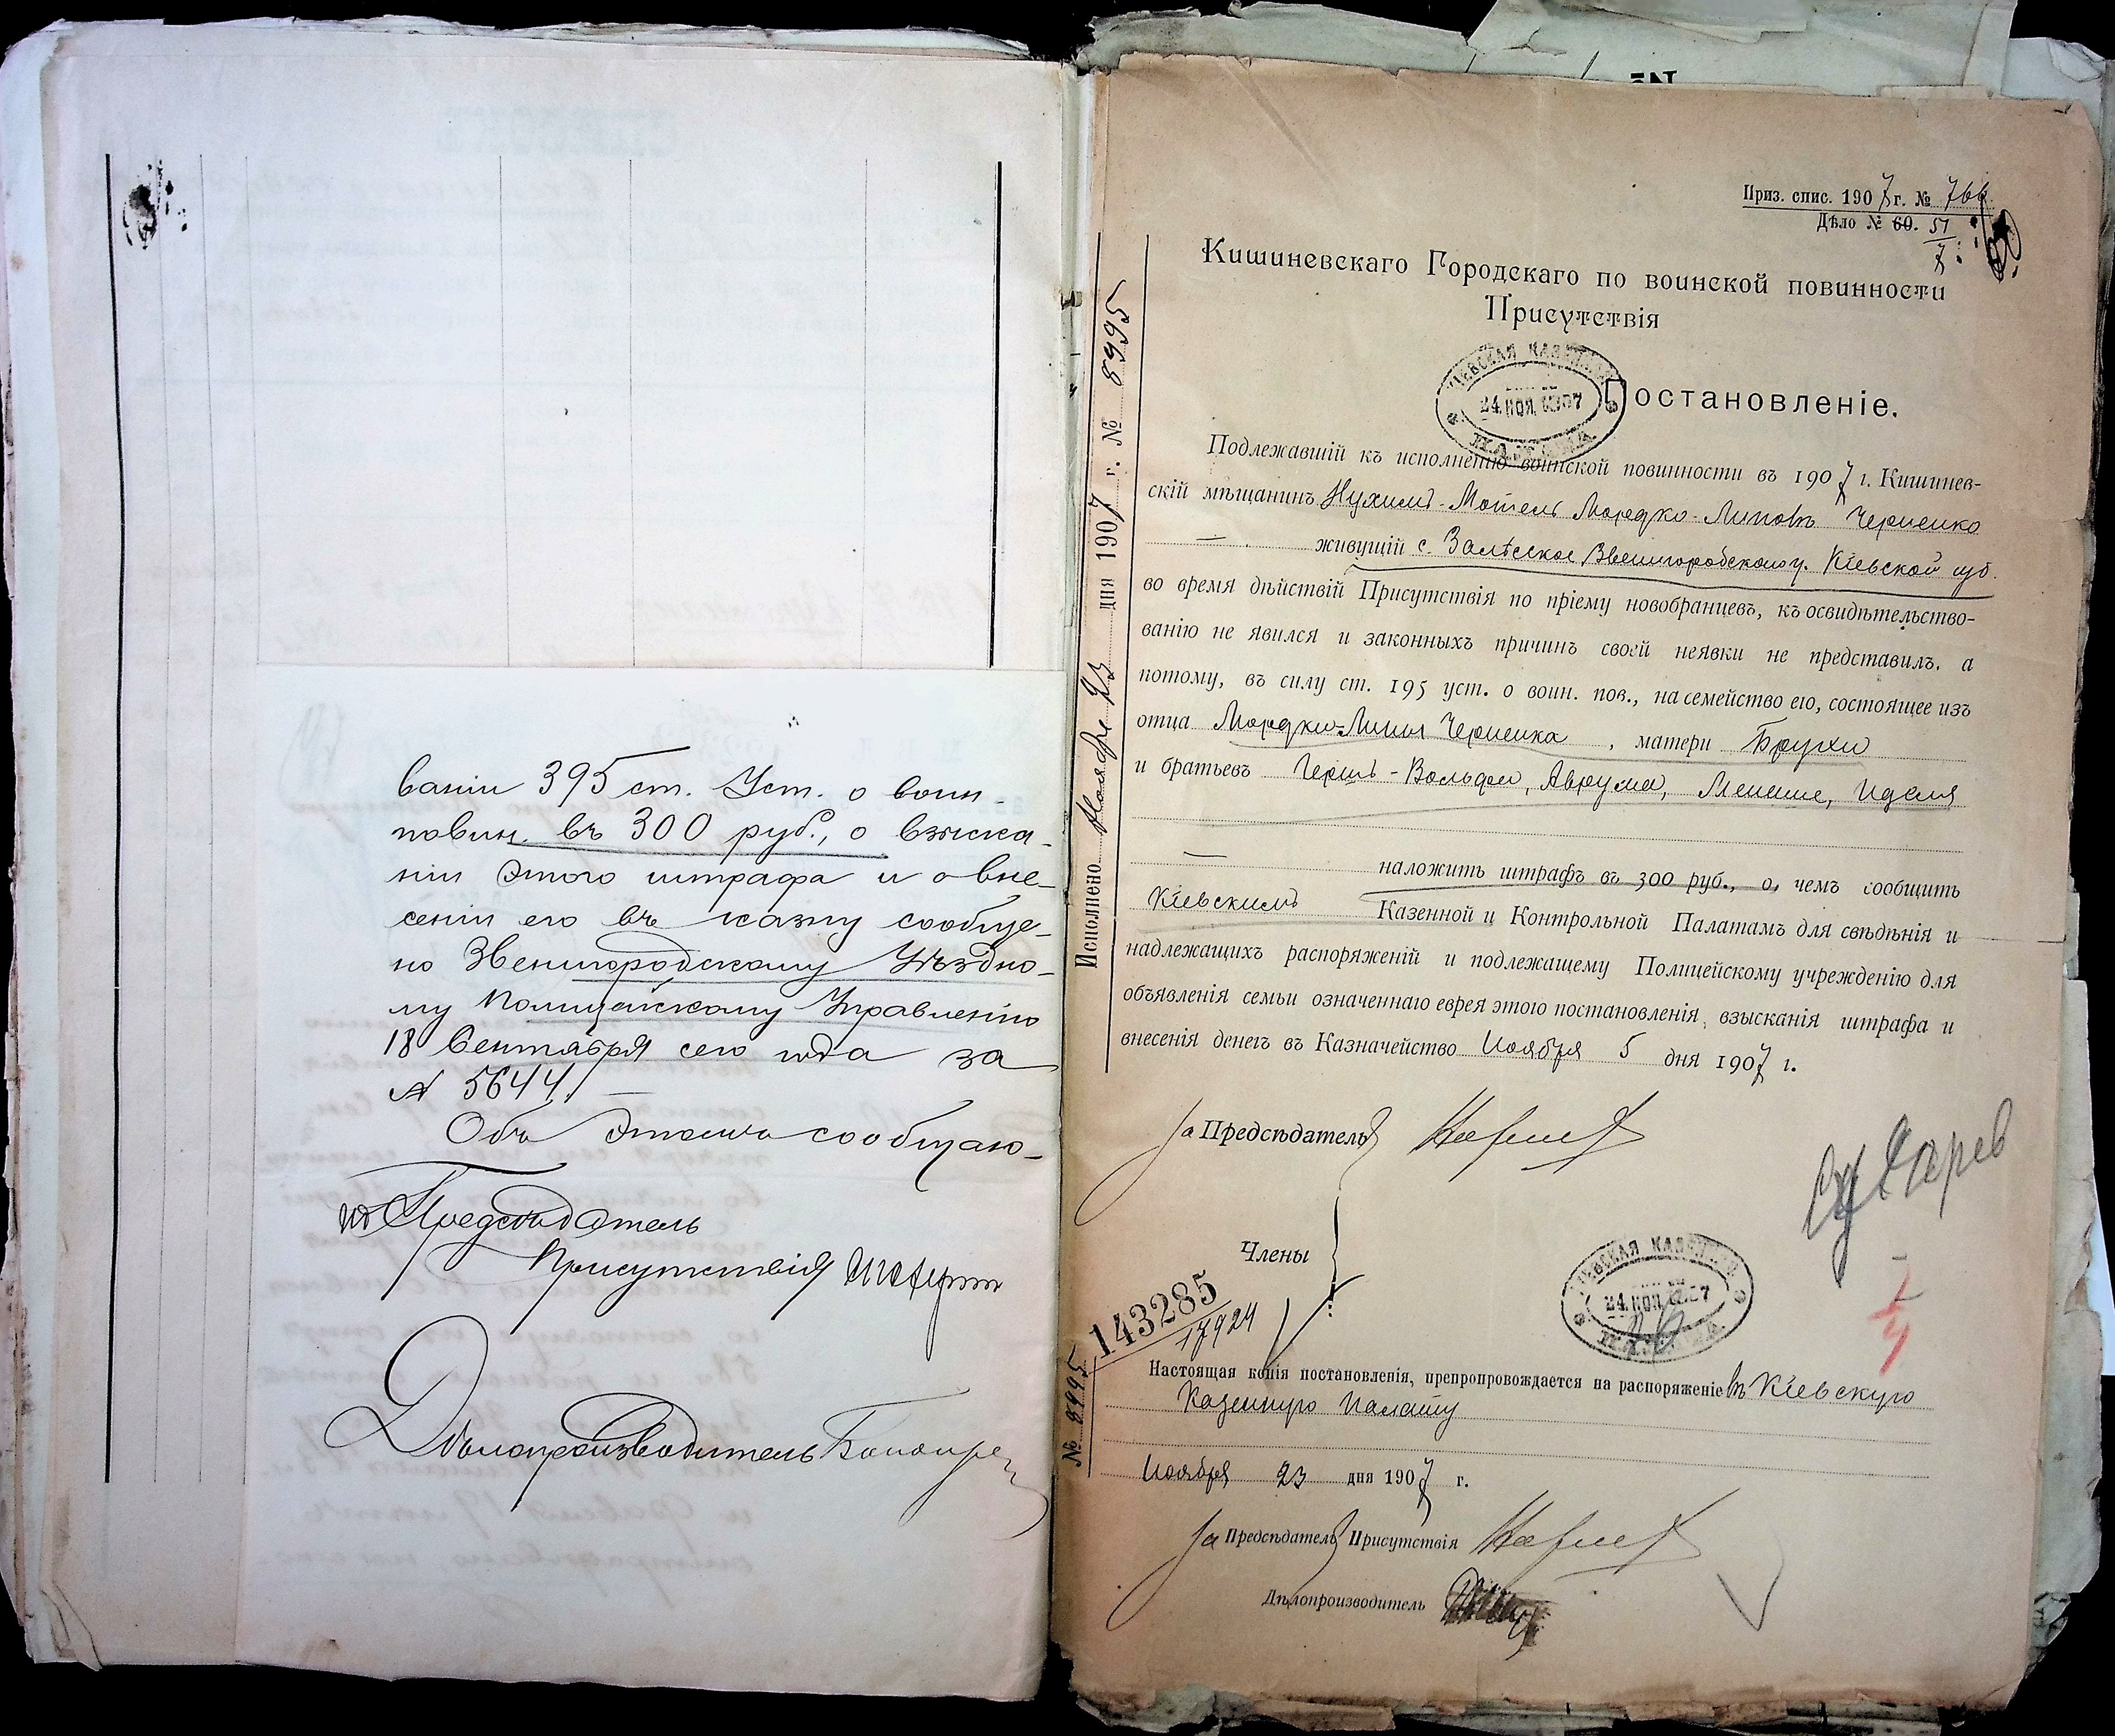 ваніи 395 ст. Уст. о воин.
повин. въ 300 руб., о взыска-
ніи этого штрафа и о вне-
сеніи его въ казну сообще-
но Звенигородскому Уѣздно-
му Полицейскому Управленію
18 Сентября сего года за
№ 5644.
Объ этомъ сообщаю-
Предсѣдатель
Присутствія
Дѣлопроизводитель
Приз. спис. 1907 г. № 766
Дѣло № 60. 51/7
Кишиневскаго Городскаго по воинской повинности
Присутствія
КІЕВСКАЯ КАЗЕННАЯ
24. НОЯ. 1907
ПАЛАТА
Постановленіе.
Подлежавшій къ исполненію воинской повинности въ 1907 г. Кишинев-
скій мѣщанинъ Нухимъ-Мотель Мордко-Липовъ Черненко
живущій с. Залѣсское Звенигородскаго у. Кіевской губ.
во время дѣйствій Присутствія по пріему новобранцевъ, къ освидѣтельство-
ванію не явился и законныхъ причинъ своей неявки не представилъ, а
потому, въ силу ст. 195 уст. о воин. пов., на семейство его, состоящее изъ
отца Мордки-Липы Черненка, матери Брухи
и братьевъ Гершъ-Вольфа, Аврума, Менаше, Иделя
наложить штрафъ въ 300 руб., о, чемъ сообщить
Кіевскимъ Казенной и Контрольной Палатамъ для свѣдѣнія и
надлежащихъ распоряженій и подлежащему Полицейскому учрежденію для
объявленія семьи означеннаго еврея этого постановленія, взысканія штрафа и
внесенія денегъ въ Казначейство Ноября 5 дня 1907 г.
За Предсѣдателя
Члены
Исполнено Ноября 23 дня 1907 г. № 8995
143285
17924
КІЕВСКАЯ КАЗЕННАЯ
24. НОЯ. 1907
ПАЛАТА
№ 8995
Настоящая копія постановленія, препропровождается на распоряженіе въ Кіевскую
Казенную Палату
Ноября 23 дня 1907 г.
За Предсѣдателя Присутствія
Дѣлопроизводитель